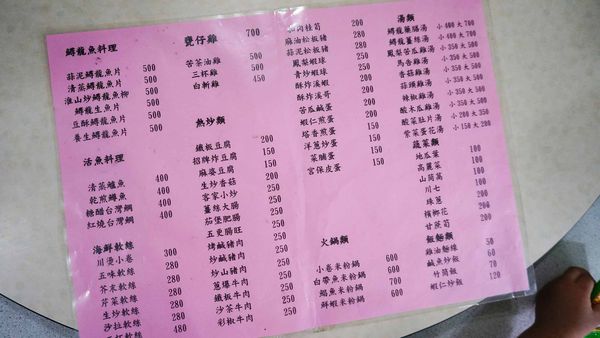 鱘龍魚料理
蒜泥鱘龍魚片 500
清蒸鱘龍魚片 500
淮山炒鱘龍魚柳 500
鱘龍生魚片 500
豆酥鱘龍魚片 500
養生鱘龍魚片 500
活魚料理
清蒸鱸魚 400
乾煎鱒魚 400
糖醋台灣鯛 400
紅燒台灣鯛 400
海鮮軟絲
川燙小卷 300
五味軟絲 280
芥末軟絲 280
芹菜軟絲 280
生炒軟絲 280
沙拉軟絲 280
480
甕仔雞 700
苦茶油雞 500
三杯雞 500
白斬雞 450
熱炒類
鐵板豆腐 200
招牌炸豆腐 150
麻婆豆腐 150
生炒香菇 200
客家小炒 250
薑絲大腸 250
茄堡肥腸 250
五更腸旺 250
烤鹹豬肉 250
炒鹹豬肉 250
炒山豬肉 250
蔥爆牛肉 250
鐵板牛肉 250
沙茶牛肉 250
彩椒牛肉 250
肉桂筍 200
麻油松板豬 280
蒜泥松板豬 280
鳳梨蝦球 280
青炒蝦球 280
酥炸溪蝦 200
酥炸溪哥 200
苦瓜鹹蛋 200
蝦仁煎蛋 200
塔香煎蛋 150
洋蔥炒蛋 150
菜脯蛋 150
宮保皮蛋 150
火鍋類
小卷米粉鍋 600
白帶魚米粉鍋 600
鯧魚米粉鍋 700
鮮蝦米粉鍋 600
湯類
鱘龍藥膳湯 小400大700
鱘龍薑絲湯 小400大700
鳳梨苦瓜雞湯 小350大500
馬告雞湯 小350大500
香菇雞湯 小350大500
蒜頭雞湯 小350大500
辣椒雞湯 小350大500
酸木瓜雞湯 小350大500
酸菜肚片湯 小200大350
紫菜蛋花湯 小150大200
蔬菜類
地瓜葉 100
高麗菜 100
山茼萵 100
川七 200
珠蔥 200
檳榔花 200
甘蔗筍 200
飯麵類
雞油麵線 50
鹹魚炒飯 60
竹筒飯 70
蝦仁炒飯 120